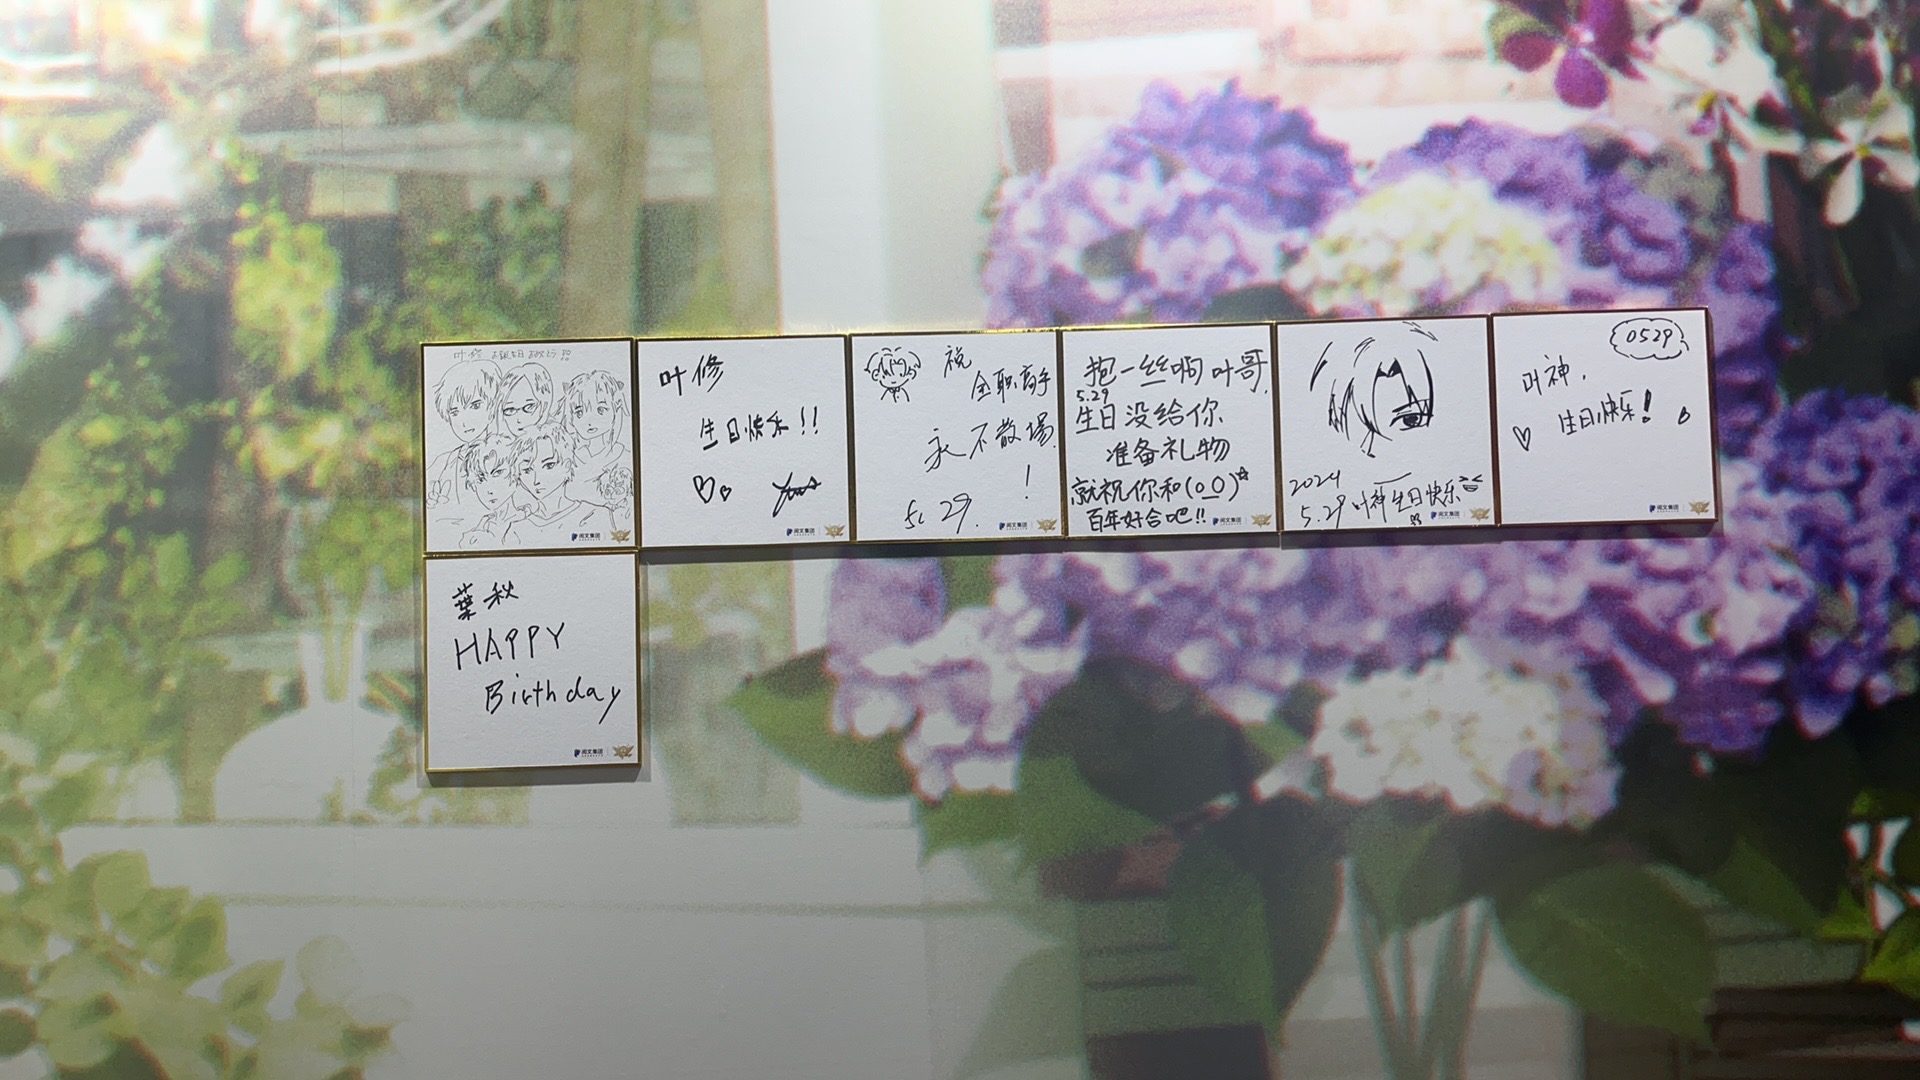 叶修
叶修
生日快乐!!
祝
全职高手
永不散场
!
5.29.
抱一丝啊叶哥,
5.29
生日没给你
准备礼物
就祝你和(o_o)☆
百年好合吧!!
2024
5.29 叶神生日快乐
0529
叶神,
生日快乐!
阅文集团
阅文集团
阅文集团
阅文集团
阅文集团
阅文集团
葉秋
HAPPY
Birthday
阅文集团